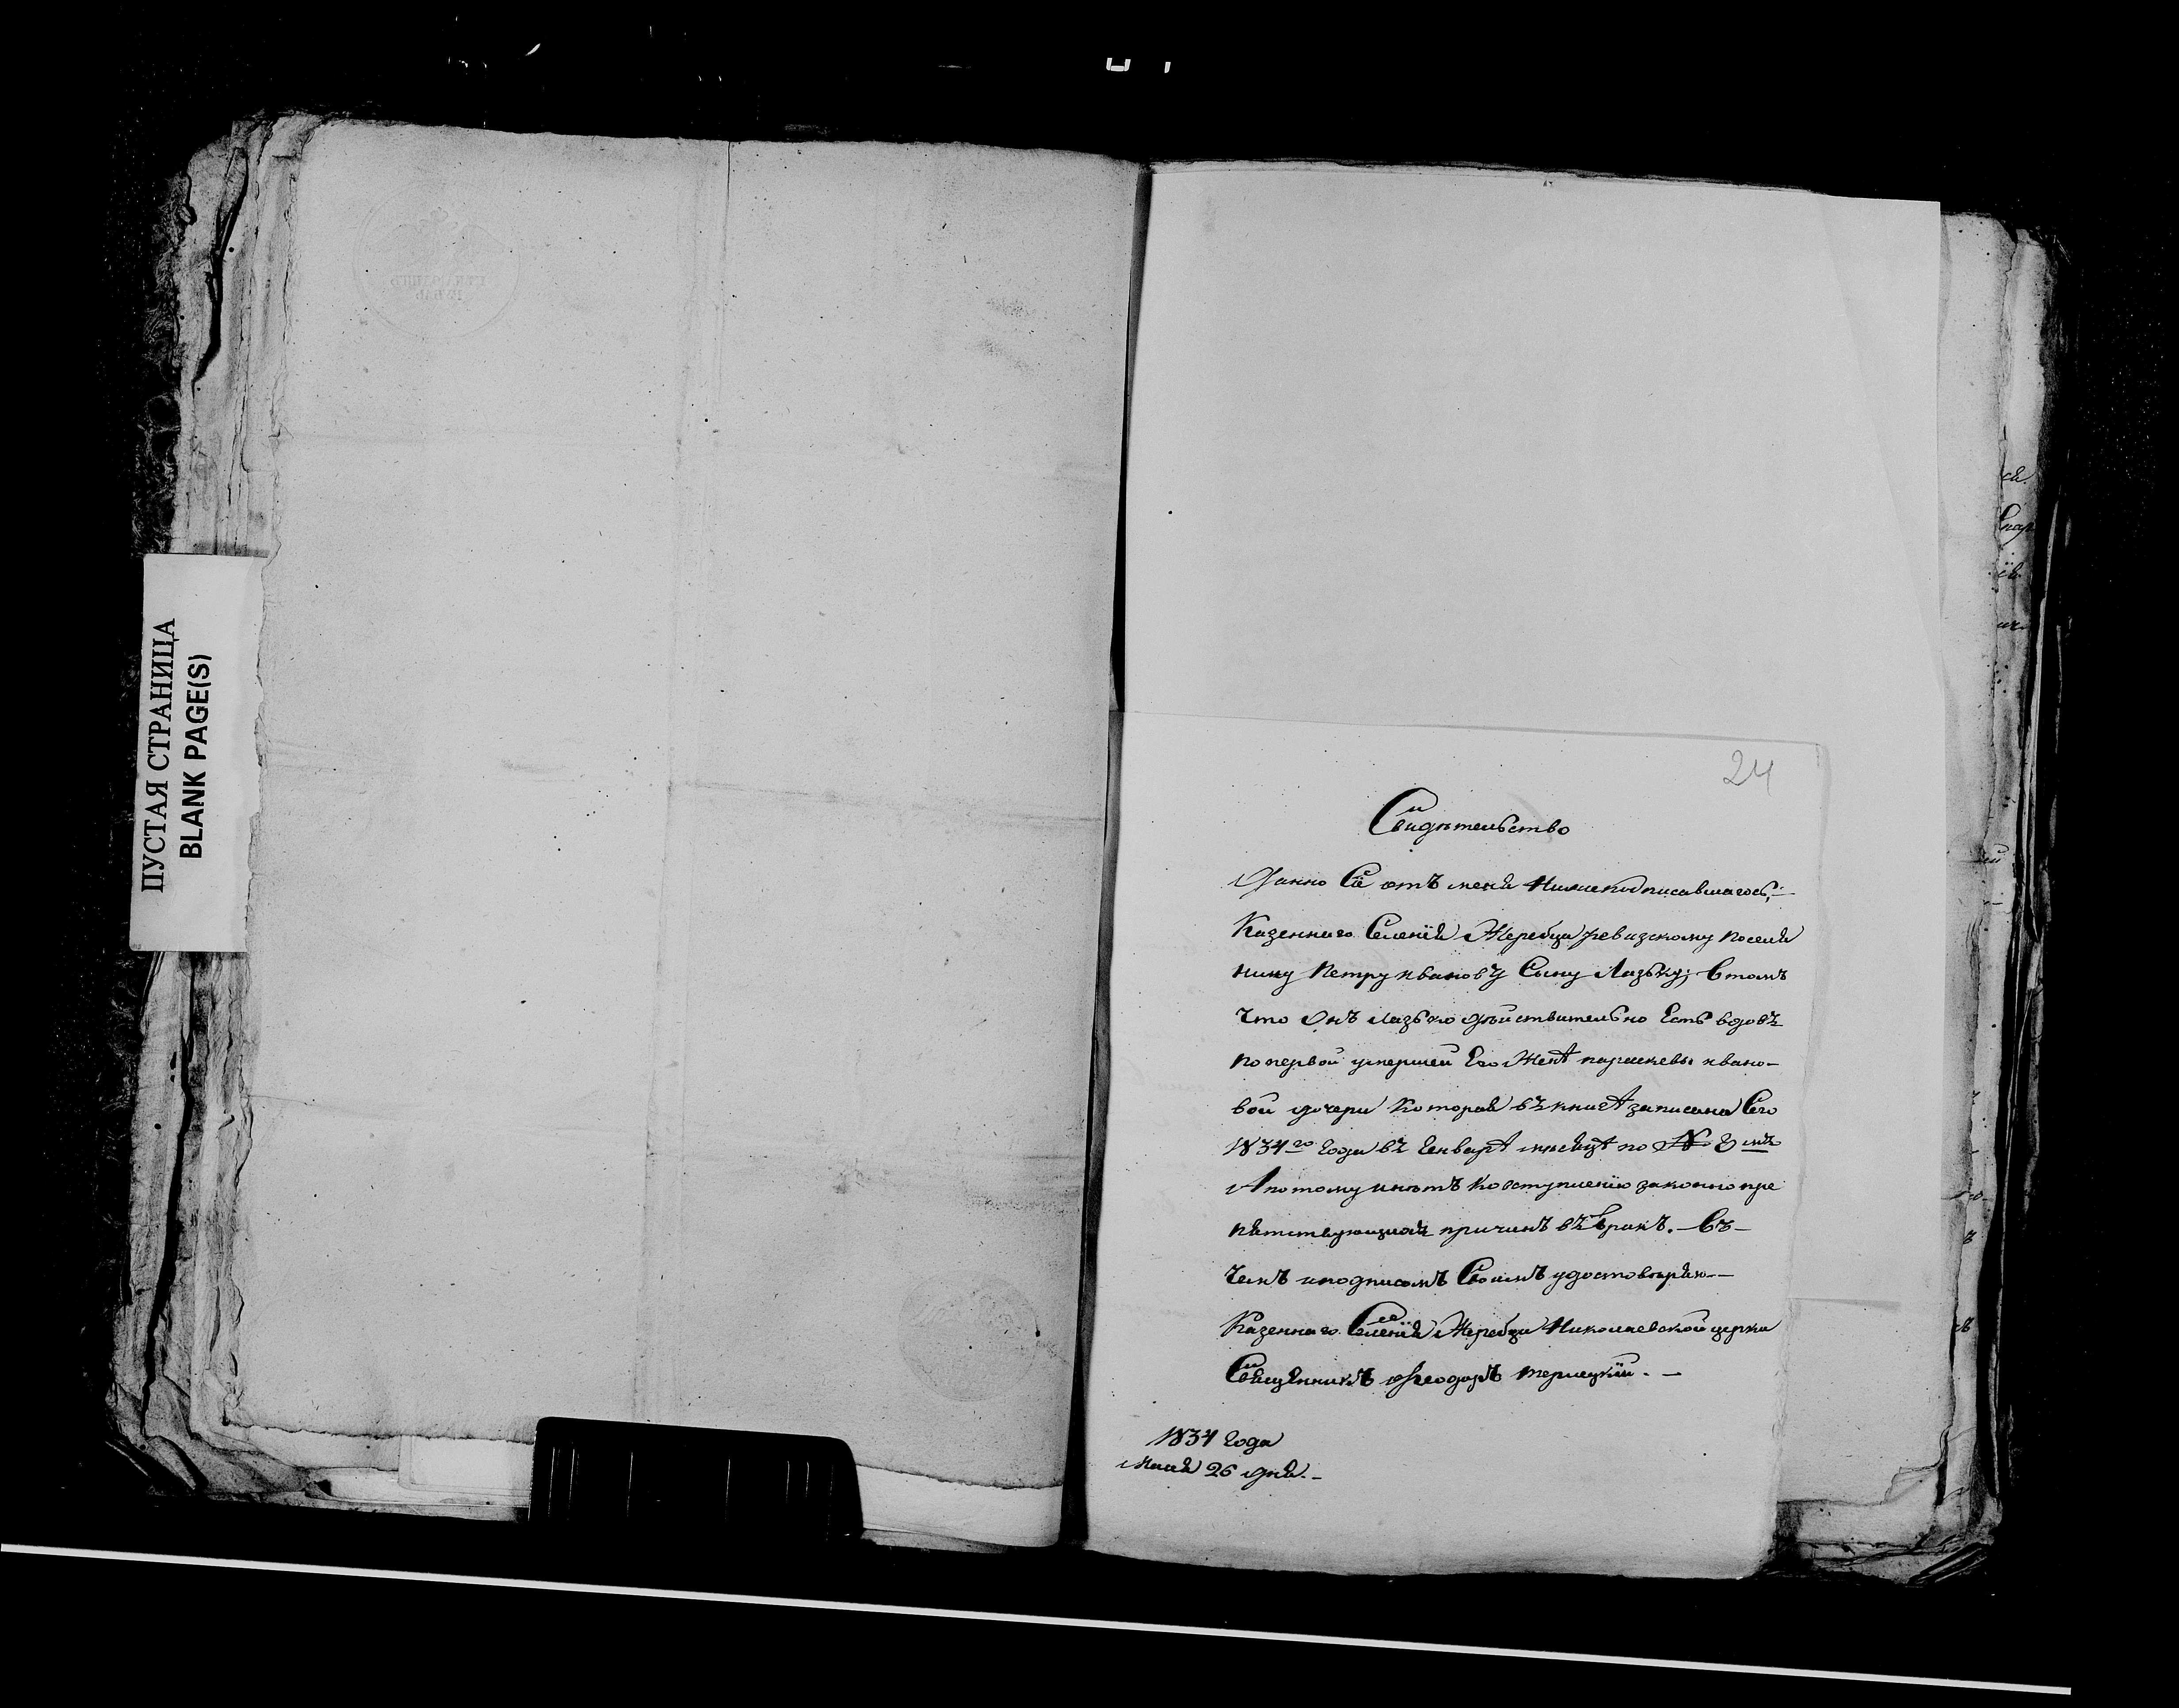 ПУСТАЯ СТРАНИЦА
BLANK PAGE(S)
24
Свидѣтельство
Данно Сіе отъ меня Нижеподписавшагось,
Казеннаго Селенія Жеребца ревизскому поселя
нину Петру иванову Сыну Лазьку; Втомъ
что Онъ Лазько дѣйствительно Есть вдовъ
по первой умершей Его Женѣ параскевы ивано-
вой дочери которая въ книгѣ записана Сего
1834го Года въ Генварѣ мѣсяцѣ по № 3 мъ
А потому инѣтъ ко вступленію законно пре
пятствующихъ причинъ въ бракъ. – Въ –
чемъ иподписомъ Своимъ удостовѣряю –
Казеннаго Селенія Жеребца Николаевской церкви
Священникъ Феодоръ
1834 Года
Маія 26 дня. –